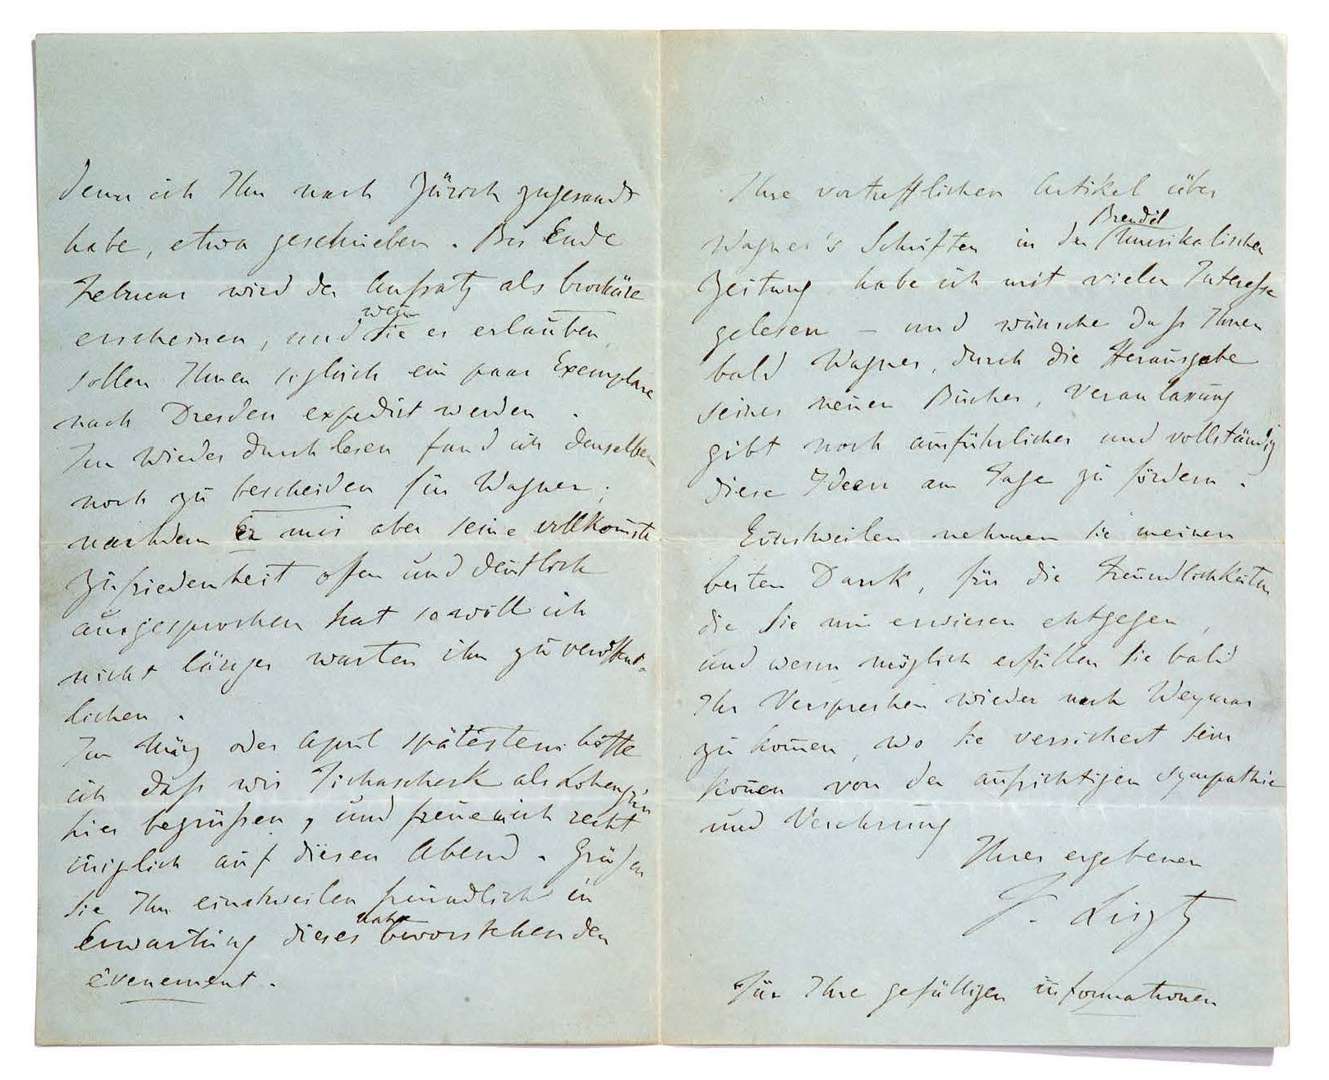 denn ich Ihm nach Zürich zugesandt
habe, etwa geschrieben. Bis Ende
Februar wird der Aufsatz als brochüre
erscheinen, und wenn Sie es erlauben,
sollen Ihnen sogleich ein paar Exemplare
nach Dresden expedirt werden.
Im wieder durchlesen fand ich denselben
noch zu bescheiden für Wagner;
nachdem Er mir aber seine vollkomste
Zufriedenheit offen und deutlich
ausgesprochen hat so will ich
nicht länger warten ihn zu veröffent-
lichen.
Im März oder April spätestens hoffe
ich dass wir Tichascheck als Lohengrin
hier begrüßen, und freue mich recht
auf diesen Abend. Grüßen
Sie Ihn einstweilen freundlich in
Erwartung dieses nahe bevorstehenden
évenement.
Ihre vortrefflichen Artikel über
Wagner's Schriften in der Brendel Musikalischen
Zeitung habe ich mit vielen Interesse
gelesen – und wünsche dass Ihnen
bald Wagner, durch die Herausgabe
seiner neuen Bücher, Veranlassung
gibt noch ausführlicher und vollständig
diese Ideen am Tage zu fördern.
Einstweilen nehmen Sie meinen
besten Dank, für die Freundlichkeiten
die Sie mir erwiesen entgegen,
und wenn möglich erfüllen Sie bald
Ihr Versprechen wieder nach Weymar
zu komen, wo Sie versichert sein
könen von der aufrichtigen Sympathie
und Verehrung
Ihres ergebenen
F. Liszt
Für Ihre gefälligen informationen